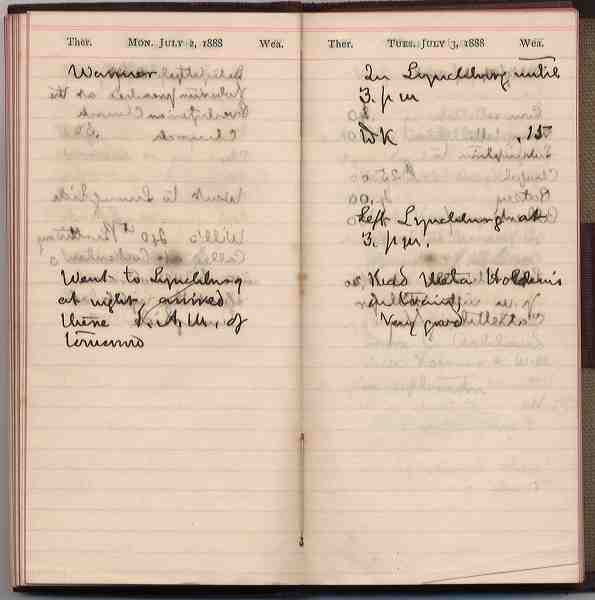 Ther. MON. JULY 2, 1888 Wea.
Warmer
Went to Lynchburg
at night, arrived
there 1. A. M., of
tomorrow
Ther. TUES. JULY 3, 1888 Wea.
In Lynchburg until
3. p m
.15
Left Lynchburg at
3. p.m.
Read Meta Holden's
Very good